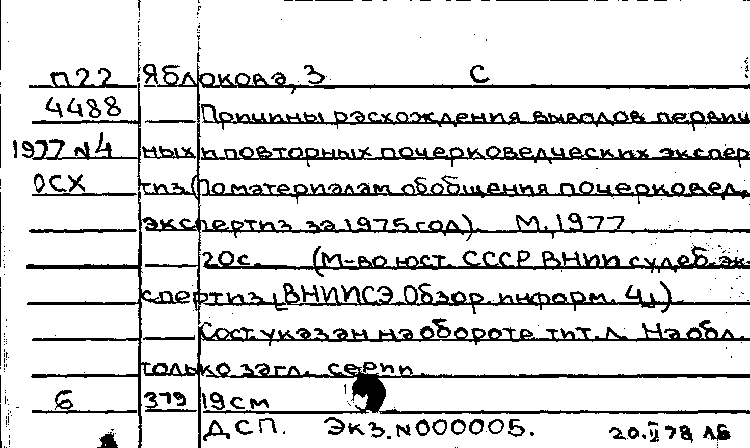 П22 Яблокова, З С
4488 Причины расхождения выводов первич
1977 N4 ных и повторных почерковедческих экспер
ОСХ тиз (По материалам обобщения почерковед.
экспертиз за 1975 год). М, 1977
20с. (М-во юст. СССР ВНИИ судеб. эк-
спертиз, ВНИИСЭ Обзор. информ. 4,)
Сост. указан на обороте тит. л. На обл.
только загл. серии
6 379 19 см
ДСП. Экз. N000005. 20.II 78